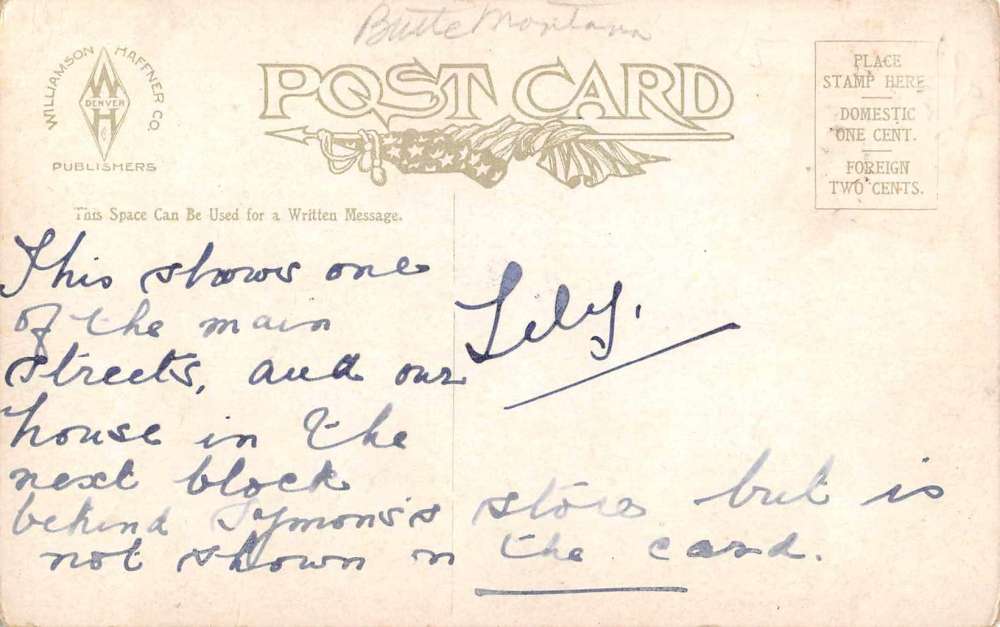 Butte Montana
WILLIAMSON HAFFNER CO.
W
DENVER
H
PUBLISHERS
POST CARD
PLACE
STAMP HERE
DOMESTIC
ONE CENT.
FOREIGN
TWO CENTS.
This Space Can Be Used for a Written Message.
This shows one
of the main
streets, and our
house in the
next block
behind Symons's stores but is
not shown on the card.
Lily.